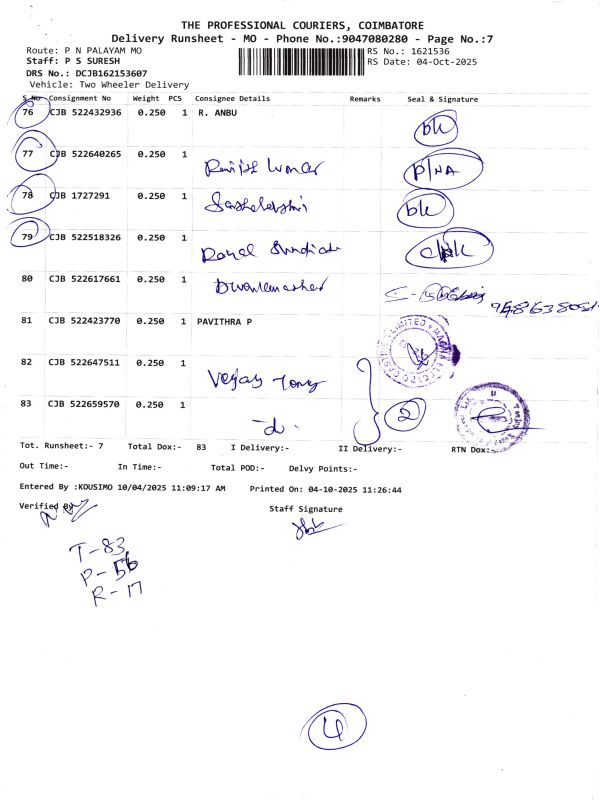 THE PROFESSIONAL COURIERS, COIMBATORE
Delivery Runsheet - MO - Phone No.:9047080280 - Page No.:7
Route: P N PALAYAM MO
RS No.: 1621536
Staff: P S SURESH
RS Date: 04-Oct-2025
DRS No.: DCJB162153607
Vehicle: Two Wheeler Delivery
S.No Consignment No Weight PCS Consignee Details Remarks Seal & Signature
76 CJB 522432936 0.250 1 R. ANBU
77 CJB 522640265 0.250 1
78 CJB 1727291 0.250 1
79 CJB 522518326 0.250 1
80 CJB 522617661 0.250 1
81 CJB 522423770 0.250 1 PAVITHRA P
82 CJB 522647511 0.250 1
83 CJB 522659570 0.250 1
2
Tot. Runsheet:- 7 Total Dox:- 83 I Delivery:- II Delivery:- RTN Dox:-
Out Time:- In Time:- Total POD:- Delvy Points:-
Entered By :KOUSIMO 10/04/2025 11:09:17 AM Printed On: 04-10-2025 11:26:44
Verified By
Staff Signature
T-83
P-56
R-17
4